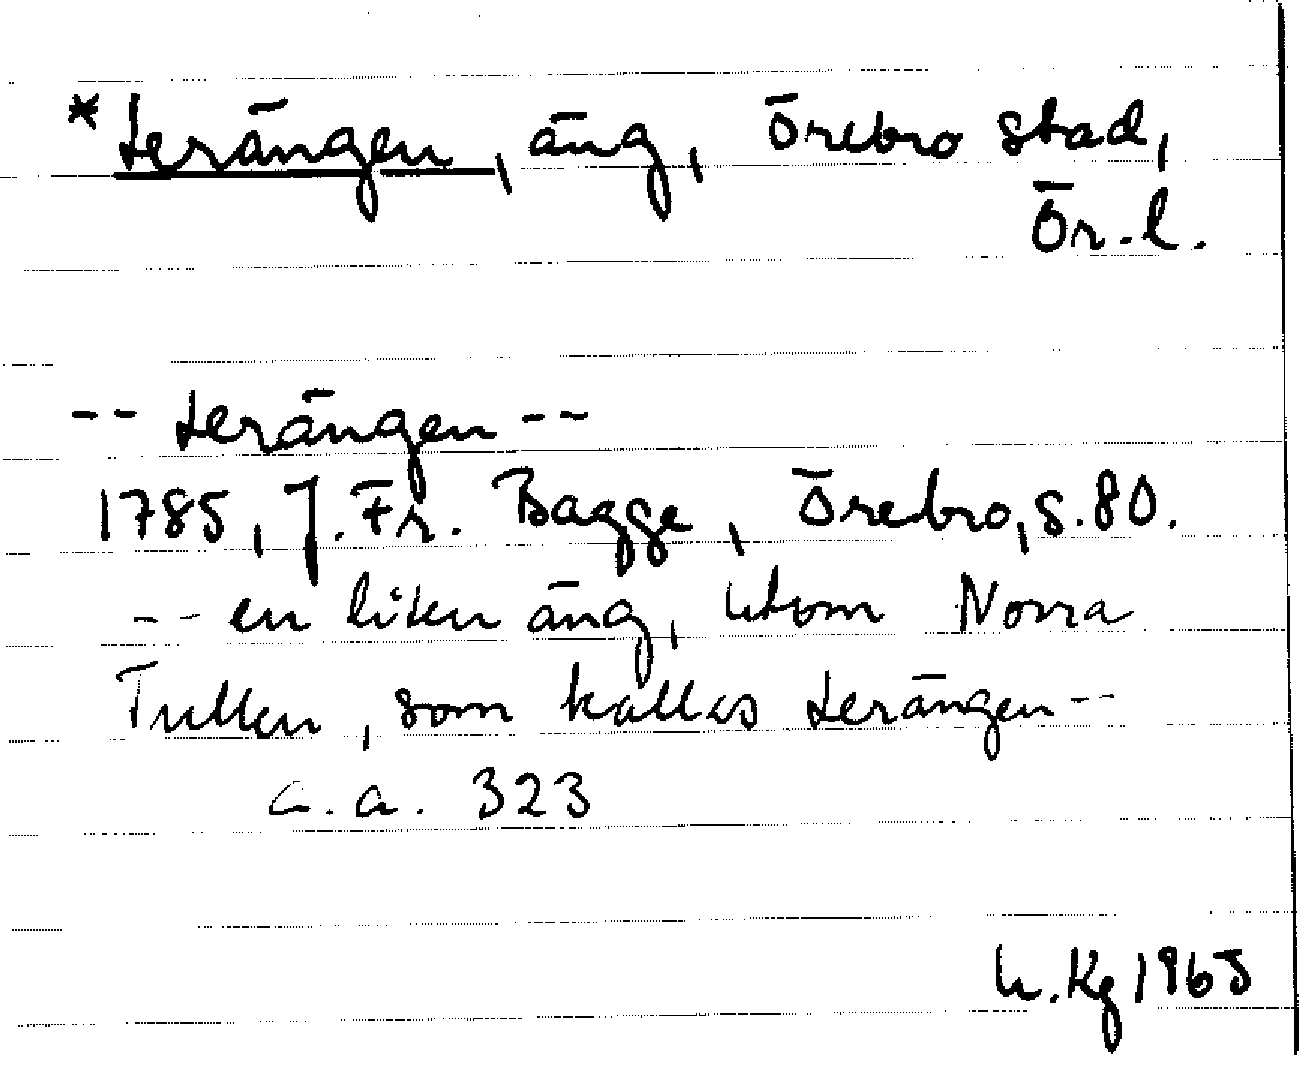 *Lerängen, äng, Örebro stad,
Ör.l.
-- Lerängen --
1785, J. Fr. Bagge, Örebro, s. 80.
-- en liten äng, utom Norra
Tullen, som kallas Lerängen --
a.a. 323
U.Kg 1965